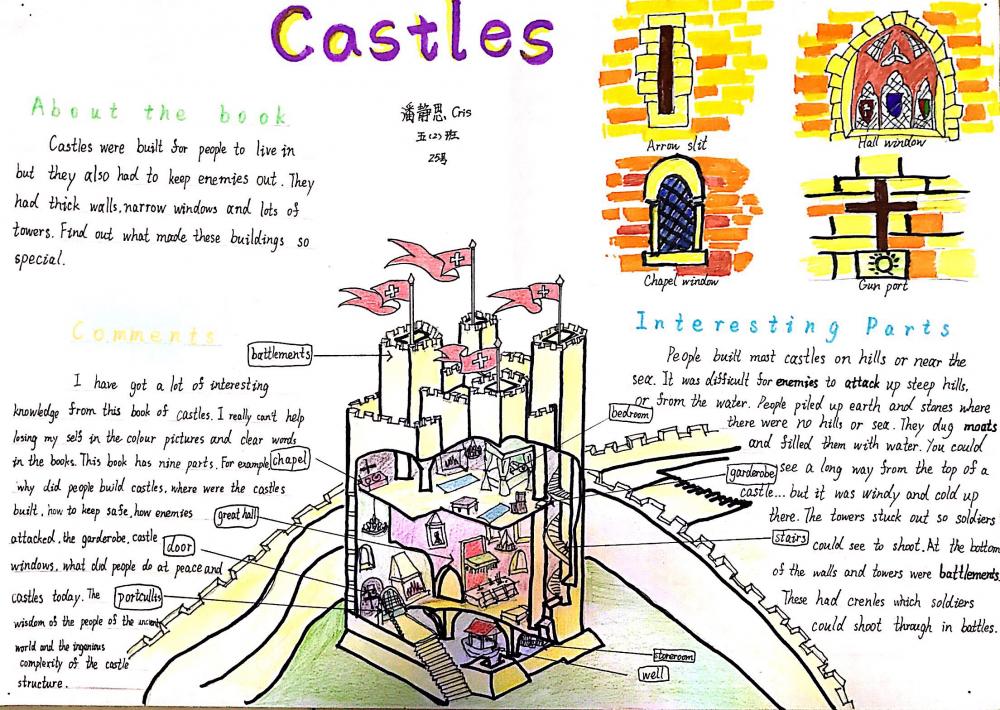 Castles
About the book
Castles were built for people to live in
but they also had to keep enemies out. They
had thick walls, narrow windows and lots of
towers. Find out what made these buildings so
special.
潘静思 Cris
五(2)班
25号
Arrow slit
Hall window
Chapel window
Gun port
Comments
I have got a lot of interesting
knowledge from this book of castles. I really can't help
losing my self in the colour pictures and clear words
in the books. This book has nine parts. For example
why did people build castles, where were the castles
built, how to keep safe, how enemies
attacked, the garderobe, castle
windows, what did people do at peace and
castles today. The
wisdom of the people of the ancient
world and the ingenious
complerity of the castle
structure.
battlements
chapel
great hall
door
portcullis
bedroom
garderobe
stairs
storeroom
well
Interesting Parts
People built most castles on hills or near the
sea. It was difficult for enemies to attack up steep hills,
or from the water. People piled up earth and stones where
there were no hills or sea. They dug moats
and filled them with water. You could
see a long way from the top of a
castle... but it was windy and cold up
there. The towers stuck out so soldiers
could see to shoot. At the bottom
of the walls and towers were battlements.
These had crenles which soldiers
could shoot through in battles.